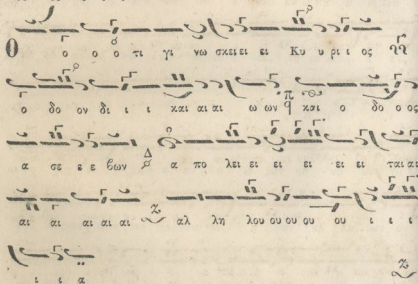 Ο ο ο ο τι γι νω σκειει ει Κυ υ ρι ι ος
ο δο ον δι ι ι και αι αι ω ων π ϥ και ο δο ο ος
α σε ε ε βων Δ α πο λει ει ει ει ει ει ει ται αι
αι αι αι αι αι αλ λη λου ου ου ου ου ι ι ι
ι ι α